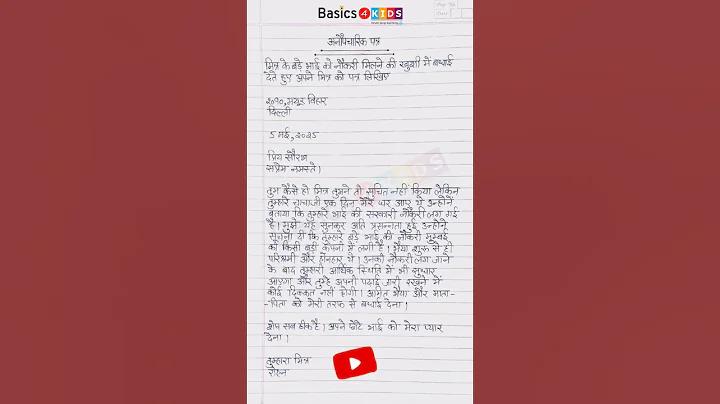 Basics 4 KIDS
अनौपचारिक पत्र
मित्र के बडे भाई को नौकरी मिलने की खुशी में बधाई
देते हुए अपने मित्र को पत्र लिखिए
२०१०, मयूर विहार
दिल्ली
5 मई, २०२५
प्रिय सौरभ
सप्रेम नमस्ते।
तुम कैसे हो मित्र तुमने तो सूचित नहीं किया लेकिन
तुम्हारे चाचाजी एक दिन मेरे घर आए थे उन्होंने
बताया कि तुम्हारे भाई की सरकारी नौकरी लग गई
है। मुझे यह सुनकर अति प्रसन्नता हुई उन्होंने
सूचना दी कि तुम्हारे बड़े भाई की नौकरी मुम्बई
की किसी बड़ी कंपनी में लगी है। भैया शुरू से ही
परिश्रमी और होनहार थे। उनकी नौकरी लग जाने
के बाद तुम्हारी आर्थिक स्थिति में भी सुधार
आएगा और तुम्हे अपनी पढ़ाई जारी रखने में
कोई दिक्कत नहीं होगी। अमित भैया और माता-
-पिता को मेरी तरफ से बधाई देना।
शेष सब ठीक है। अपने छोटे भाई को मेरा प्यार
देना।
तुम्हारा मित्र
रोहन